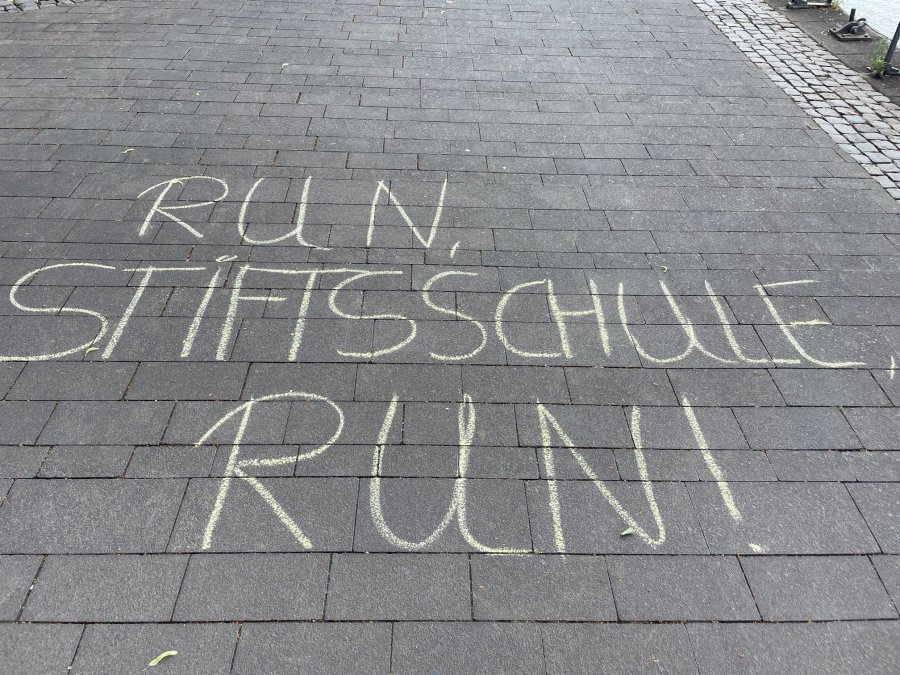 RUN,
STiFTSSCHULE,
RUN!